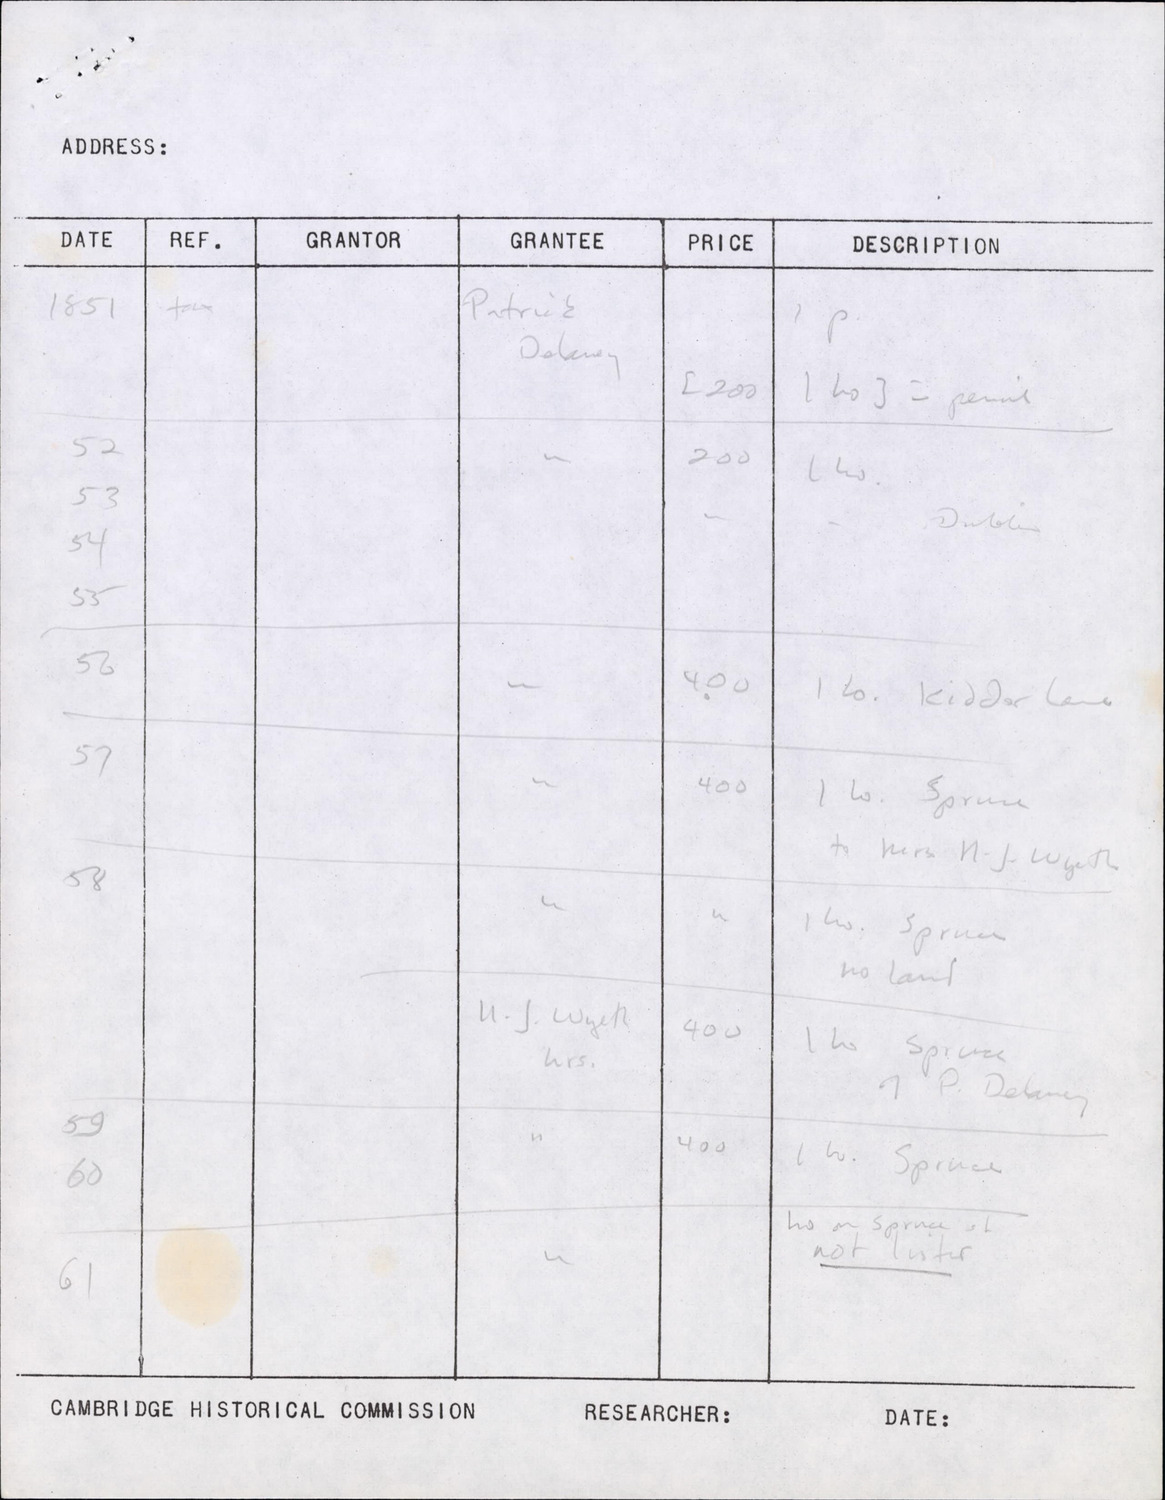 ADDRESS:
DATE REF. GRANTOR GRANTEE PRICE DESCRIPTION
1851 tax Patrick 1 p.
Delaney
[200 1 ho] = permit
52 " 200 1 ho.
53 " " Dublin
54
55
56 " 400 1 ho. Kidder Lane
57 " 400 1 ho. Spruce
to hers N. J. Wyeth
58 " " 1 ho. Spruce
no land
N. J. Wyeth 400 1 ho Spruce
hrs. P. Delaney
59 " 400 1 ho. Spruce
60
ho on Spruce st
61 " not listed
CAMBRIDGE HISTORICAL COMMISSION RESEARCHER: DATE: